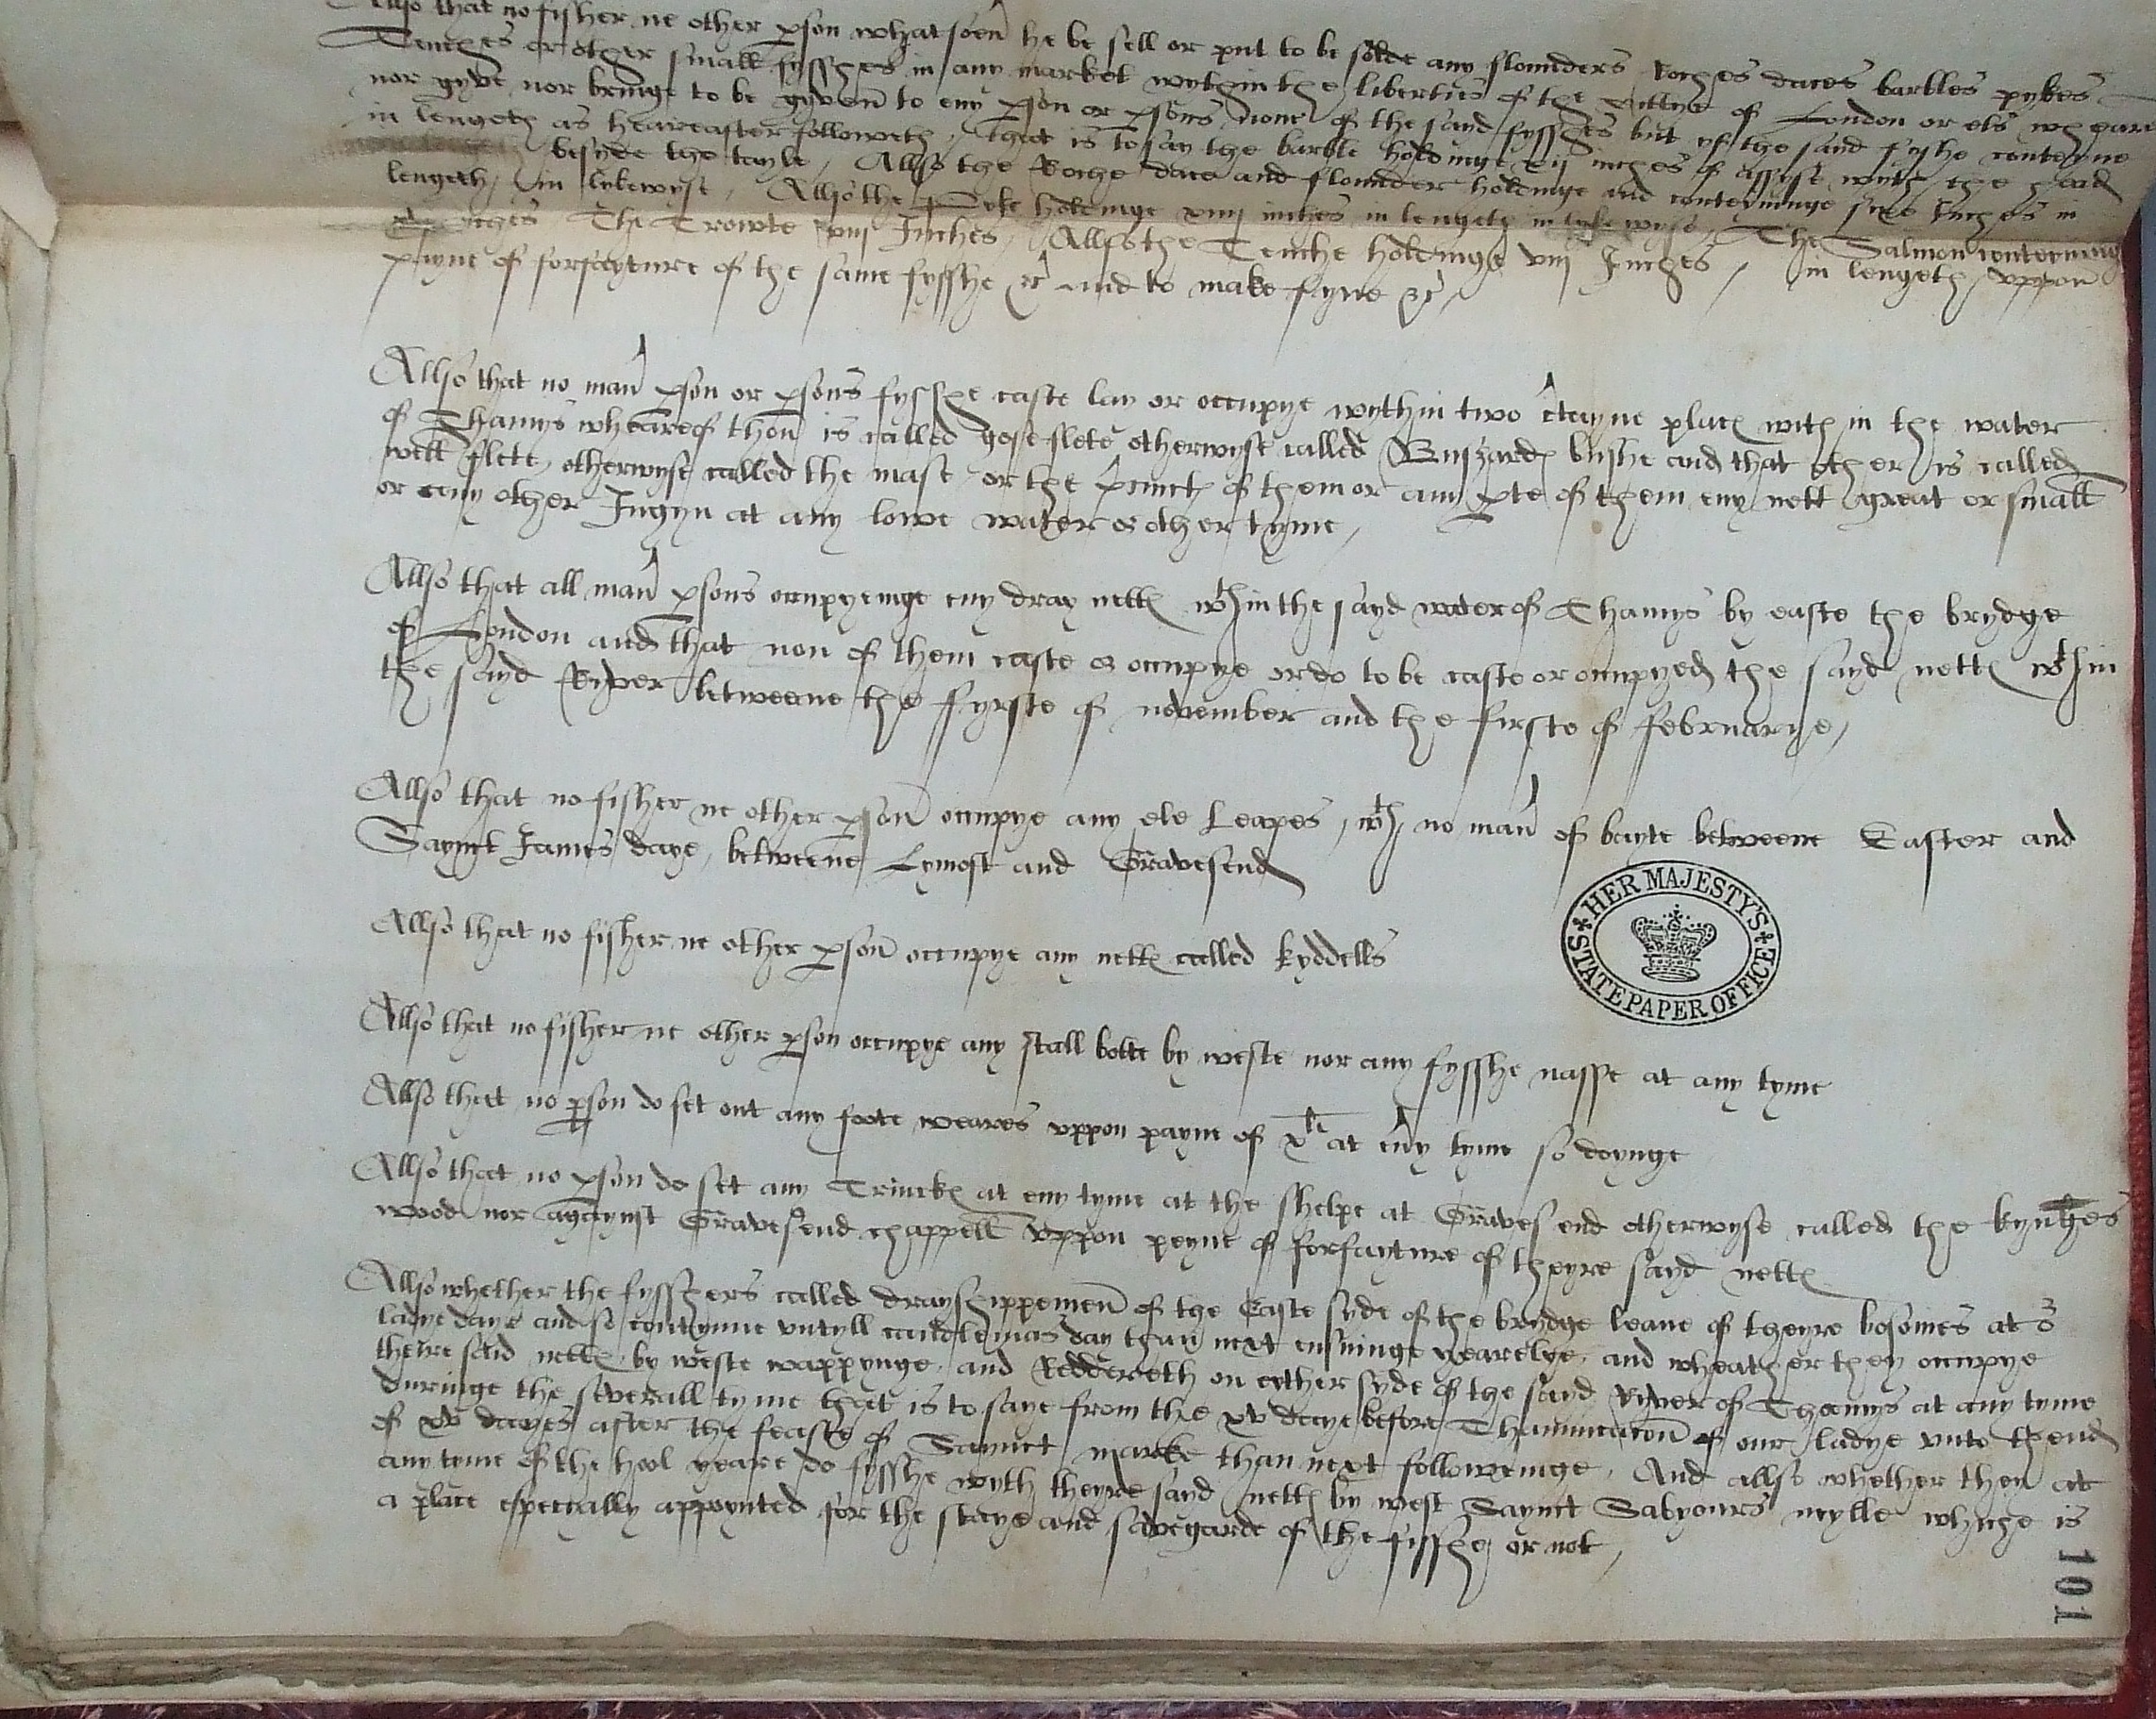 Allso that no fisher ne other pson whatsoeu he be sell or put to be solde any flounders Roches daces barbles pykes
Tenches or other small fysshes in any market wythin the liberties of the cittye of London or els wheare
nor gyve nor bringe to be gyven to eny pson or psons none of the sayd fysshes but yf the sayd fyshe conteyne
in lengeth as heareafter followeth, that is to say the barble holdinge xij inches of assyse wyth the head
besyde the tayle, Allso the Roche dace and flounder holdinge and conteyninge sixe Inches in
lengeth, in lykewyse, Allso the Pyke holdinge xiiij inches in lengeth in lykewyse, The Salmon conteyning
xv inches The Trowte viij Inches, Allso the Tenche holdinge viij Inches, in lengeth, uppon
payne of forfayture of the same fysshe &c and to make fyne &c,
Allso that no man pson or psons fysshe caste lay or occupye wythin two ctayne places with in the water
of Thamys wheareof thon is called gose flete otherwyse called Buszardes bushe and that other is called
well flete, otherwyse called the mase or the precinct of them or any pte of them eny nett great or small
or eny other Ingyn at any lowe water or other tyme,
Allso that all man psons occupyenge eny dray nettes wthin the sayd water of Thamys by easte the brydge
of London and that non of them caste or occupye or do to be caste or occupyed the sayd nettes wthin
the sayd Ryver betweene the fyrste of november and the firste of februarye,
Allso that no fisher ne other pson occupye any ele Leapes, wth no man of bayte betweene Easter and
Saynct James daye, betweene Lymost and Gravesend
Allso that no fisher ne other pson occupye any nettes called kyddells
Allso that no fisher ne other pson occupye any stall bote by weste nor any fysshe nasse at any tyme
Allso that no pson do set out any foote weares vppon payne of xli at euy tyme so doynge
Allso that no pson do set any Trinckes at eny tyme at the shelpe at Graves end otherwyse called the kynges
wood nor agaynst Gravesend chappell vppon peyne of forfayture of theyre sayd nettes
Allso whether the fysshers called drayshippemen of the Easte syde of the brydge leave of theyre bosomes at o
ladye daye and so contynue vntyll candlemas day than next ensuinge yearelye, and wheather they occupye
theire said nettes by weste wappynge, and Reddereth on eyther syde of the sayd Ryver of Thamys at any tyme
duringe the severall tyme that is to saye from the xv daye before Thanuncacon of our ladye vnto thend
of xv dayes after the feaste of Saynct marke than next followeinge, And allso whether they at
any tyme of the hool yeare do fysshe wyth theyre sayd nettes by west Saynct Sabyours mylle whiche is
a place especially appoynted for the staye and savegarde of the fisshe, or not,
HER MAJESTY'S STATE PAPER OFFICE
101